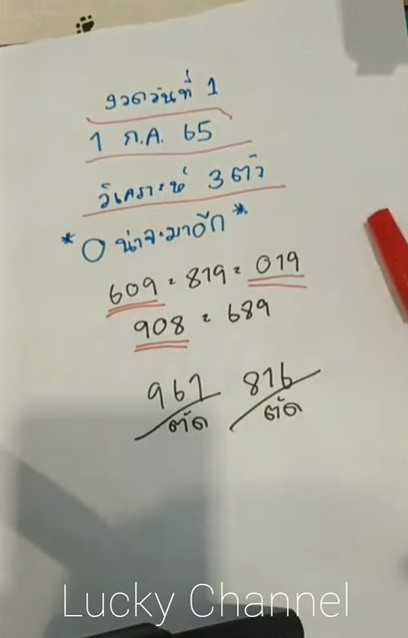 งวดวันที่ 1
1 ก.ค. 65
วิเคราะห์ 3 ตัว
*0 น่าจะมาอีก*
609 = 819 = 019
908 = 689
961 816
ตัด ตัด
Lucky Channel